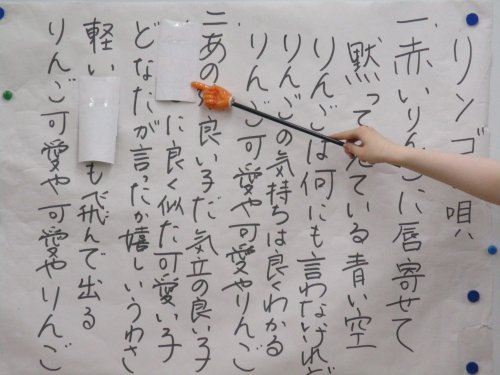 リンゴ 唄
一.赤いりんごに唇寄せて
黙って見ている青い空
りんごは何にも言わないけれど
りんごの気持ちは良くわかる
りんご可愛や可愛やりんご
二.あの子良い子だ気立の良い子
に良く似た可愛い子
どなたが言ったか嬉しいうわさ
軽い も飛んで出る
りんご可愛や可愛やりんご